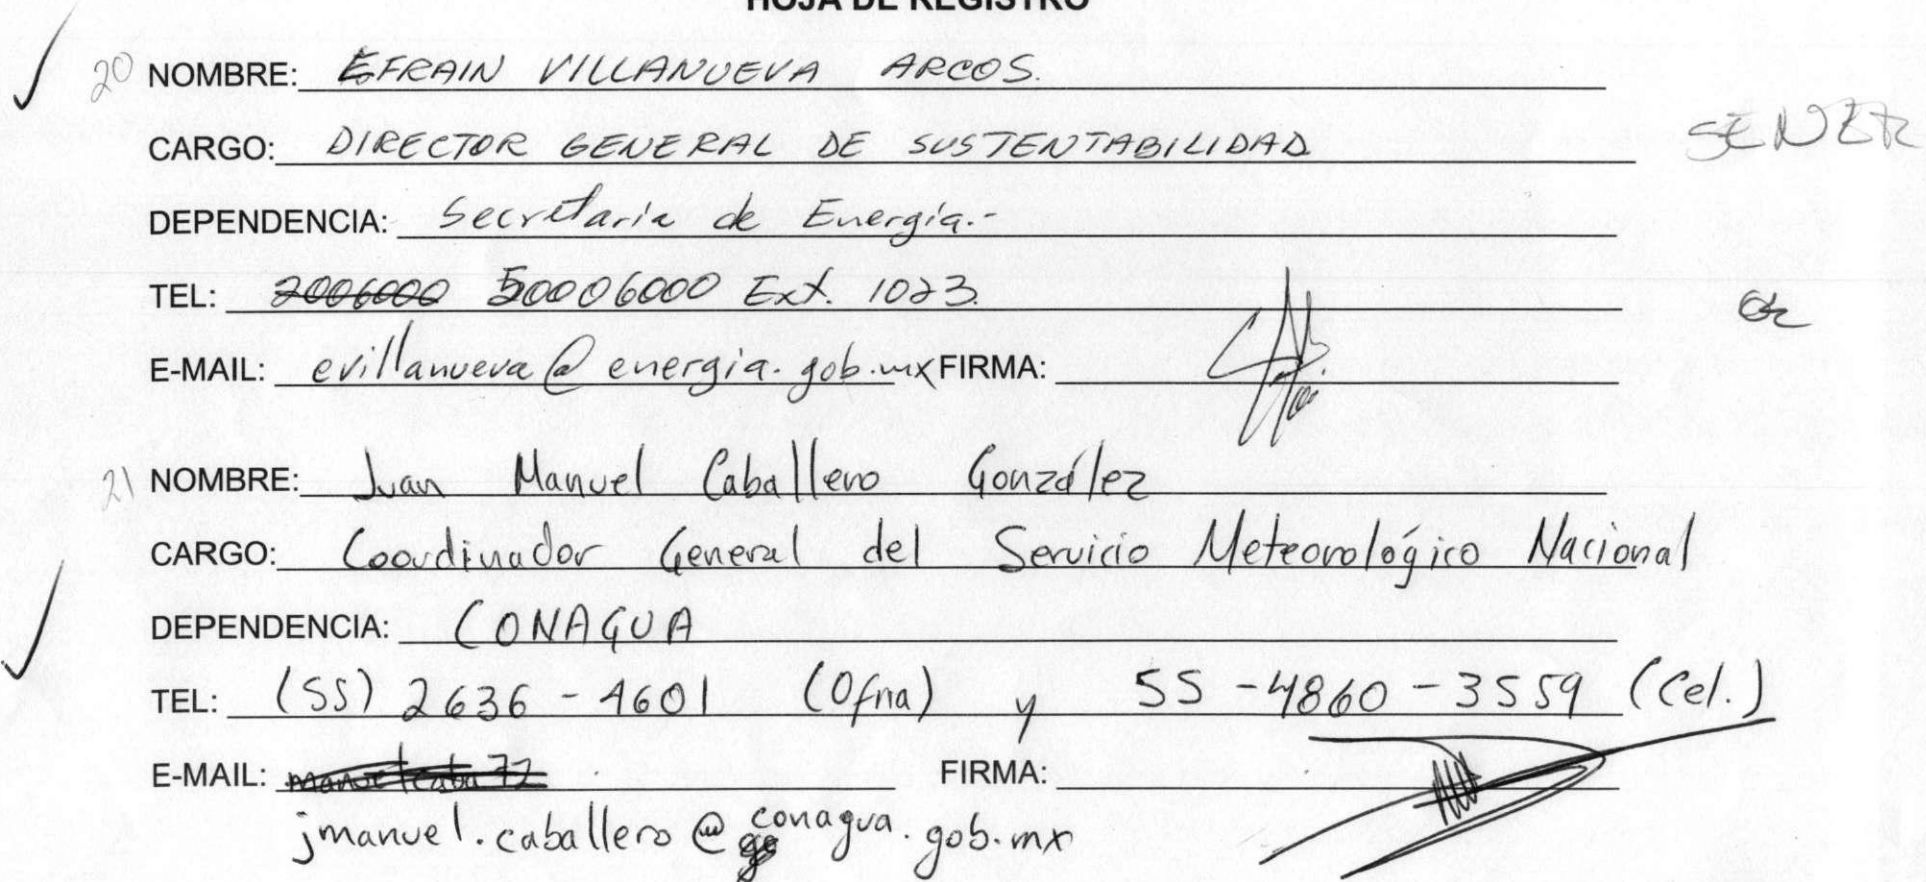 HOJA DE REGISTRO
20 NOMBRE: EFRAIN VILLANUEVA ARCOS.
CARGO: DIRECTOR GENERAL DE SUSTENTABILIDAD SENER
DEPENDENCIA: Secretaria de Energía.-
TEL: 2006000 50006000 Ext. 1023.
E-MAIL: evillanueva@energia.gob.mx FIRMA:
21 NOMBRE: Juan Manuel Caballero González
CARGO: Coordinador General del Servicio Meteorológico Nacional
DEPENDENCIA: CONAGUA
TEL: (55) 2636-4601 (Ofna) y 55-4860-3559 (Cel.)
E-MAIL: FIRMA:
jmanuel.caballero@conagua.gob.mx